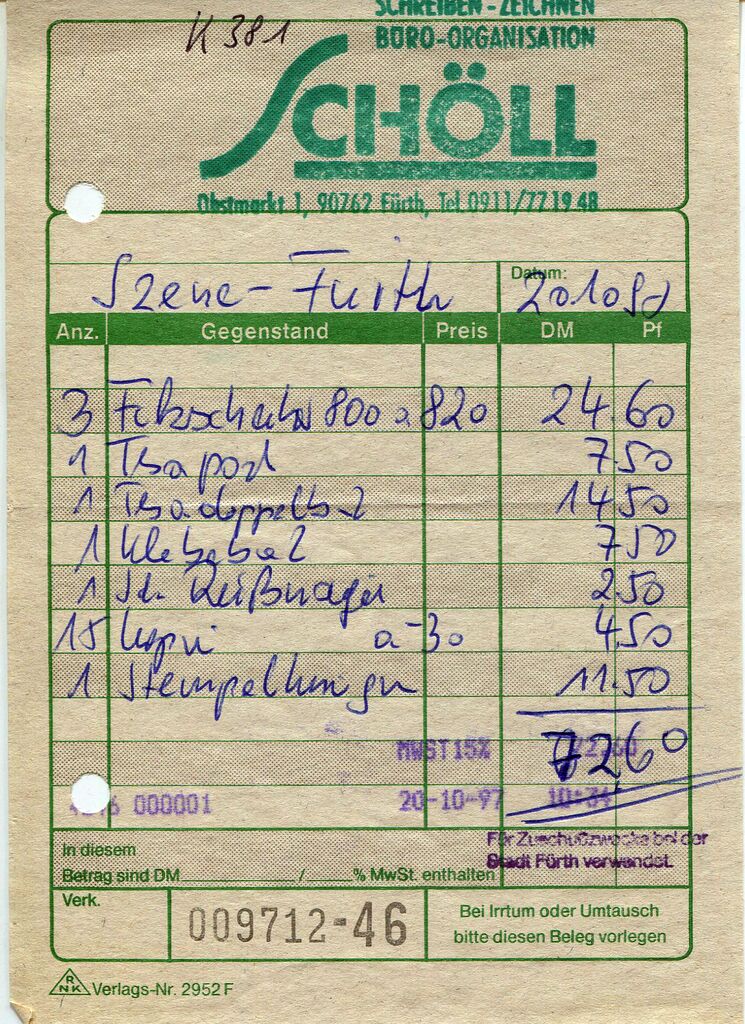 K 381
SCHREIBEN - ZEICHNEN
BÜRO-ORGANISATION
SCHÖLL
Obstmarkt 1, 90762 Fürth, Tel. 0911/77 19 48
Szene - Fürth Datum: 201097
Anz. Gegenstand Preis DM Pf
3 800 a 820 24.60
1 Tesa 7 50
1 Tesa 14 50
1 7 50
1 Reißnägel 2.50
15 Kopi a -30 4.50
1 Stempel 11.50
MWST15% 72,60
7260
000001 20-10-97 10:34
Für Zuschußzwecke bei der
Stadt Fürth verwendet.
In diesem
Betrag sind DM / % MwSt. enthalten
Verk.
009712-46
Bei Irrtum oder Umtausch
bitte diesen Beleg vorlegen
RNK Verlags-Nr. 2952 F